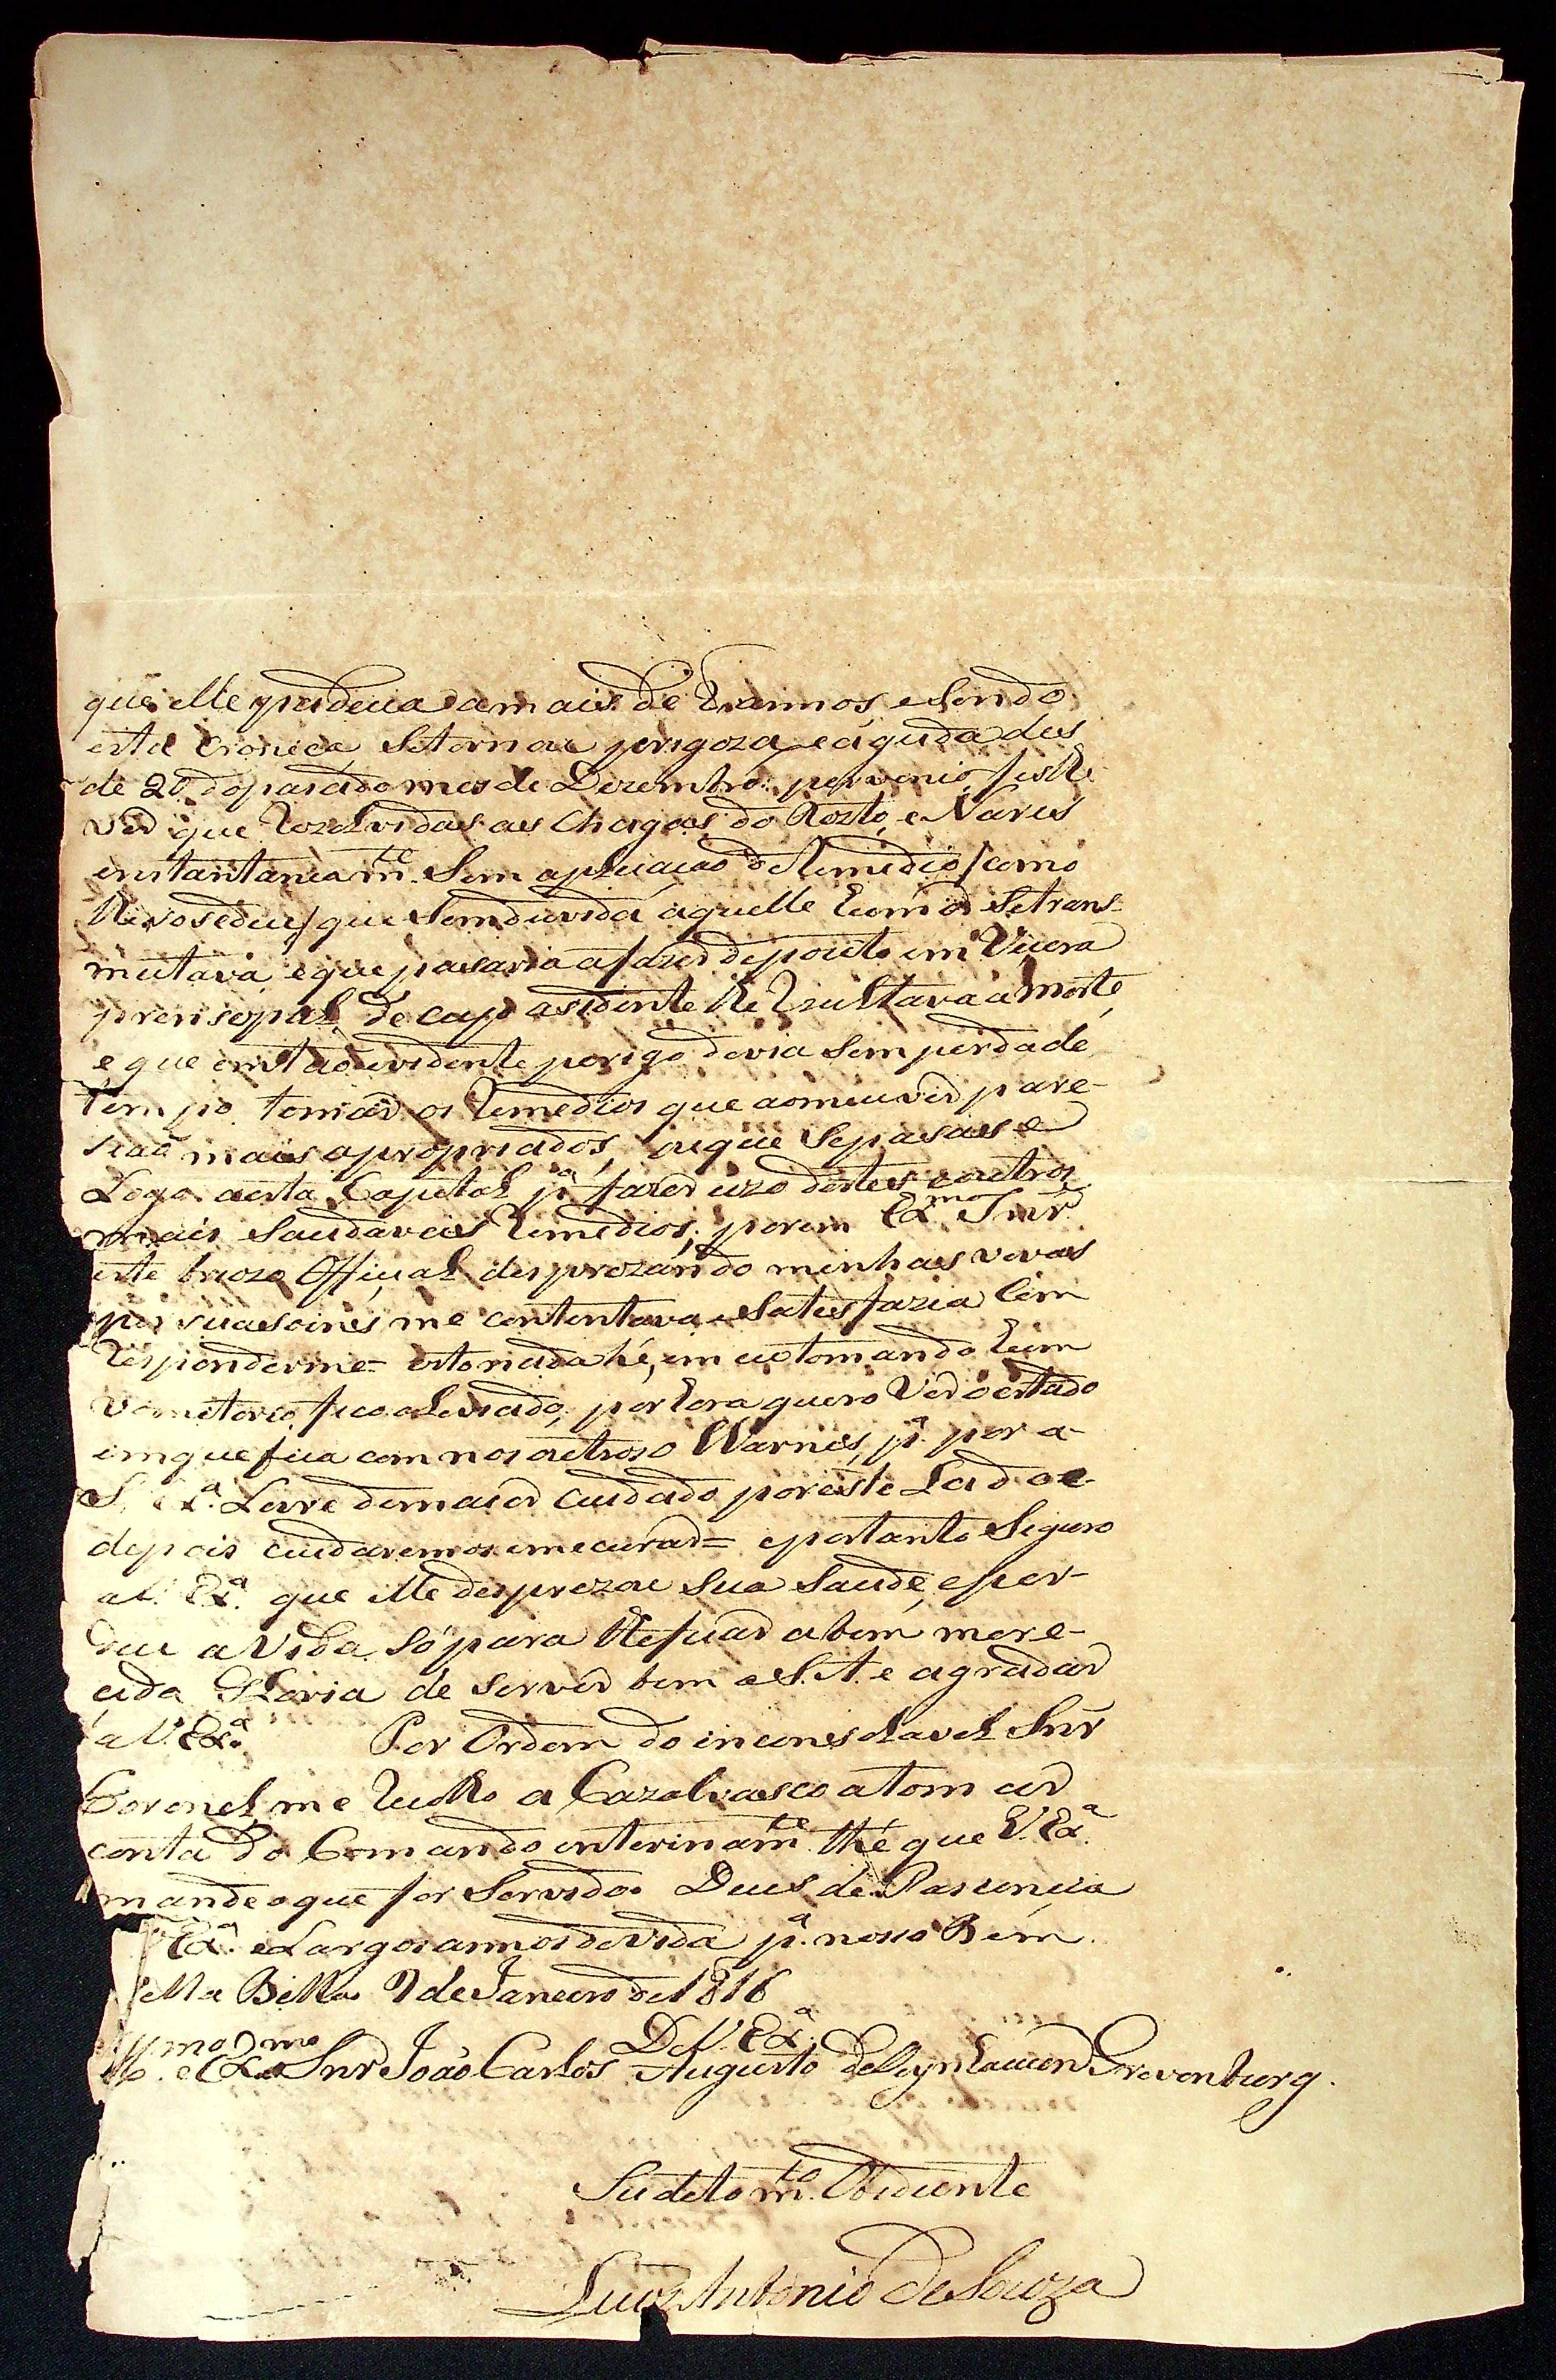 que elle padecia a mais de 2 annos, e sendo
esta cronica, se tornou perigoza, e aguda des
de 20 do pasado mes de Dezembro: per venio, fislhe
ver que rezolvidas as Chagas do Rosto, e Naris
instantaneam.te Sem aplicacao de Remedio/como
lhe vosedeu/que Sem duvida aquelle humor Setrans-
mutava, e que pasaria afazer depozito em Vicera
prensopal, de cujo asidente lhe Rezultava a Morte,
e que em tao evidente perigo devia Sem perda de
tempo tomar os Remedios que ao meu ver pare-
siaõ mais apropriados, ou que Sepasase
Logo aesta Capital p.ª fazer uzo destes e outros
mais Saudaveis Remedios; porem Ex.mo Snr.
este briozo Official desprezando minhas vivas
persuasoines me contentava, e Satisfazia Com
responderme= isto nada hé, em eu tomando hum
vomitorio fico aleviado, por hora quero Ver o estado
em que fica com nos outros o Warnes, p.ª por a
S. Ex.ª Livre demaior Cuidado por este Lado e
depois cuidaremos em ecurar= eportanto Seguro
a V. Ex.ª que elle desprezou Sua Saude, e per-
deu a Vida, só para a bem mere-
cida Gloria de Servir bem a S. A. e agradar
a V. Ex.ª Por Ordem do inconsolavel Snr
Coronel, me recolho a Cazalvasco atomar
conta do Comando interinam.te thé que V. Ex.ª
mande o que for Servido. Deus de Pasiencia
Ex.ª e Largos annos de vida p.ª nosso Bem.
ella Bella 9 de Janeiro de 1816
De V. Ex.ª
Ill.mo e Ex.mo Snr João Carlos Augusto de Oeynhausen Grevenburg.
Sudeto m.to Obidiente
Luis Antonio de Souza